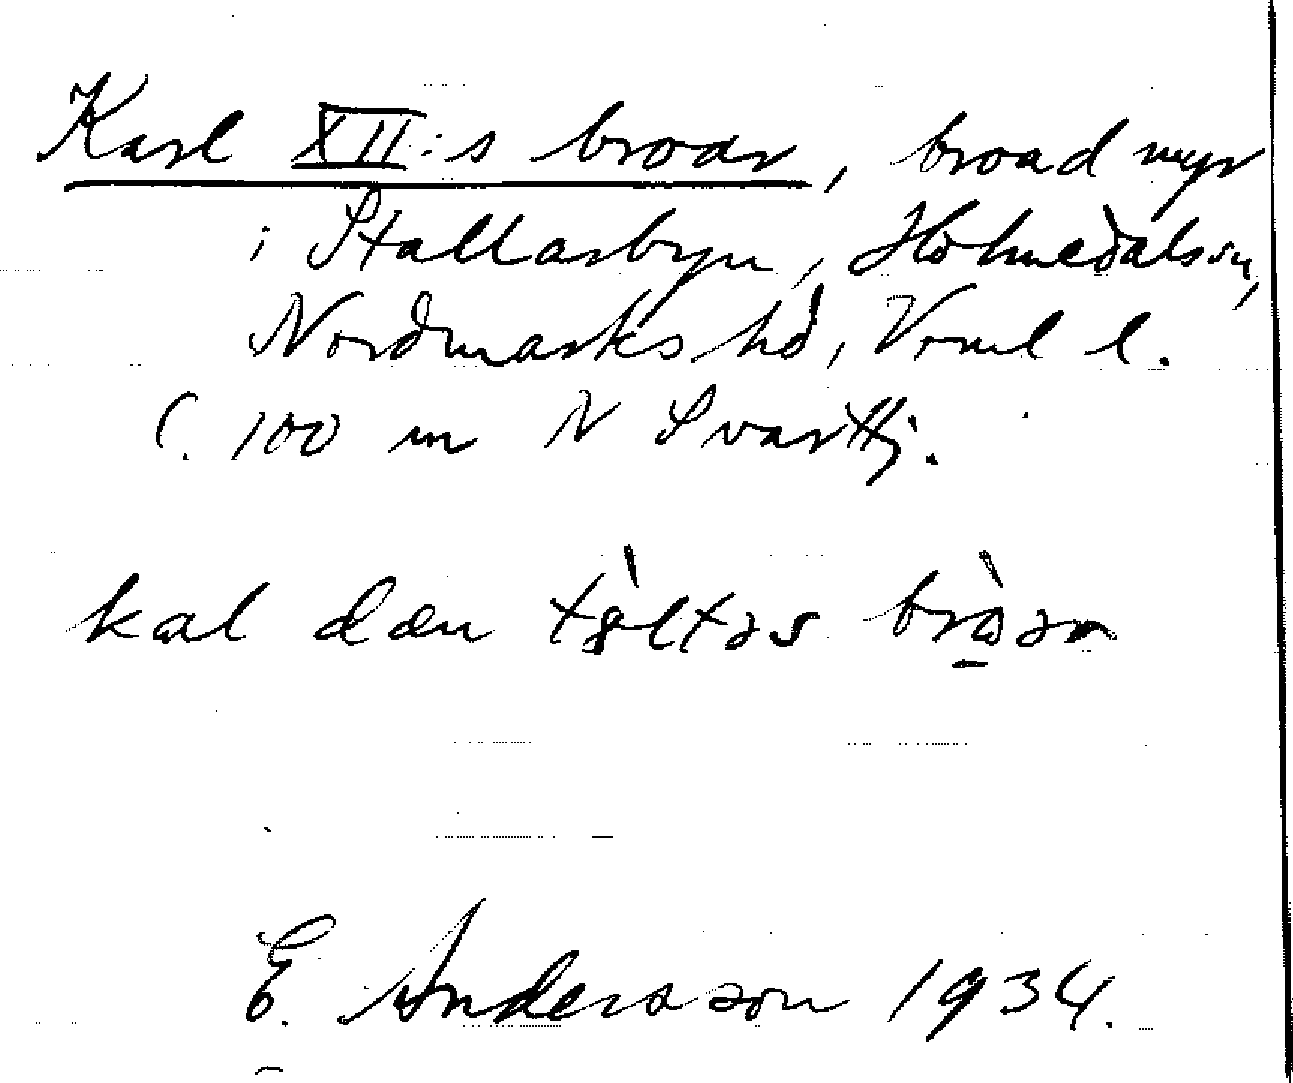 Karl XII:s broar, broad myr
i Stallarbyn, Holmedals sn,
Nordmarks hd, Vrml l.
C. 100 m N Svarttj.
kal dæn tǫ̀ltəs brò̱ər
E. Andersson 1934.